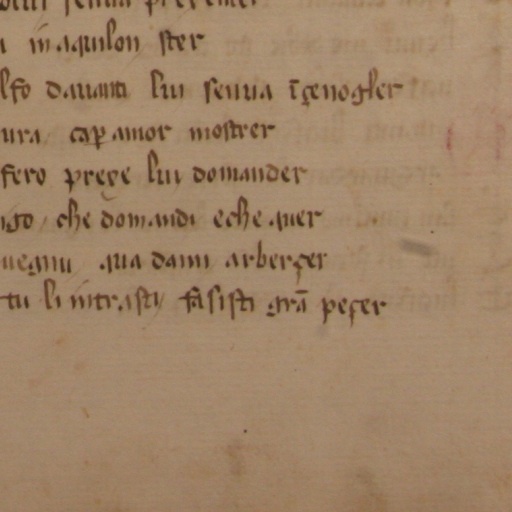 senua
in aquilon ster
lfo dauanti lui senua īçenogler
ura caꝑ amor mostrer
fero preçe lui domander
igo che domandi e che quer
uegnu qua dami arberçer
tu li intrasti fasisti grā peçer